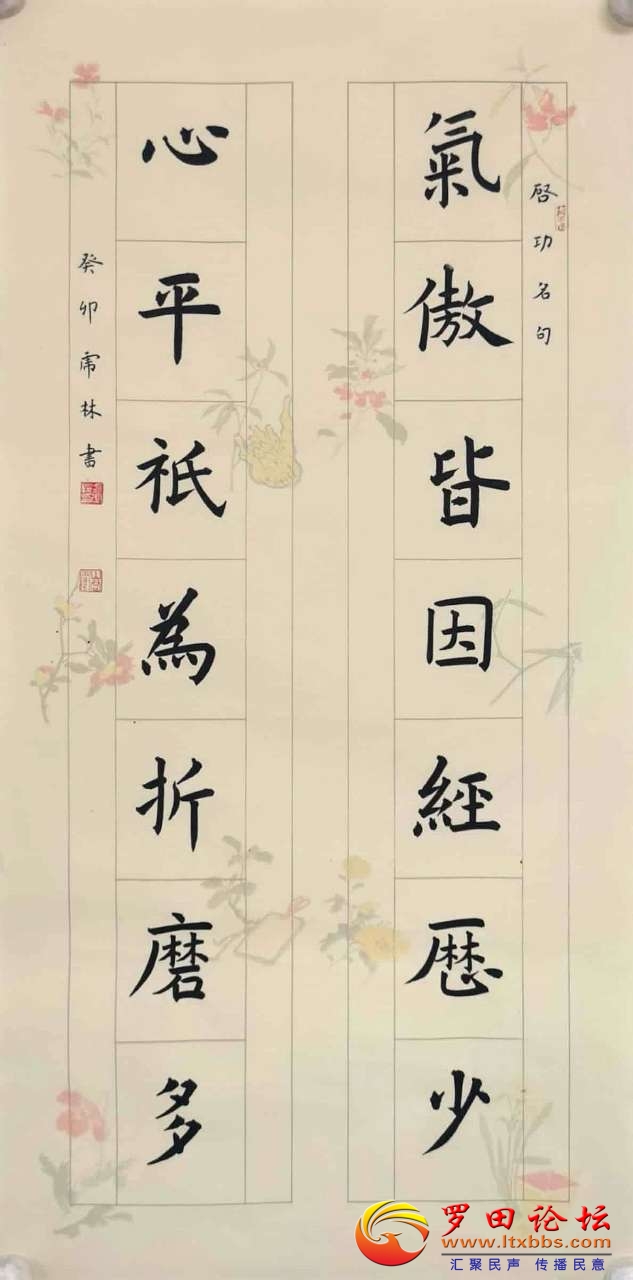 啓功名句
氣傲皆因經歷少
心平祇為折磨多
癸卯虎林書
罗田论坛
www.ltxbbs.com
汇聚民声 传播民意